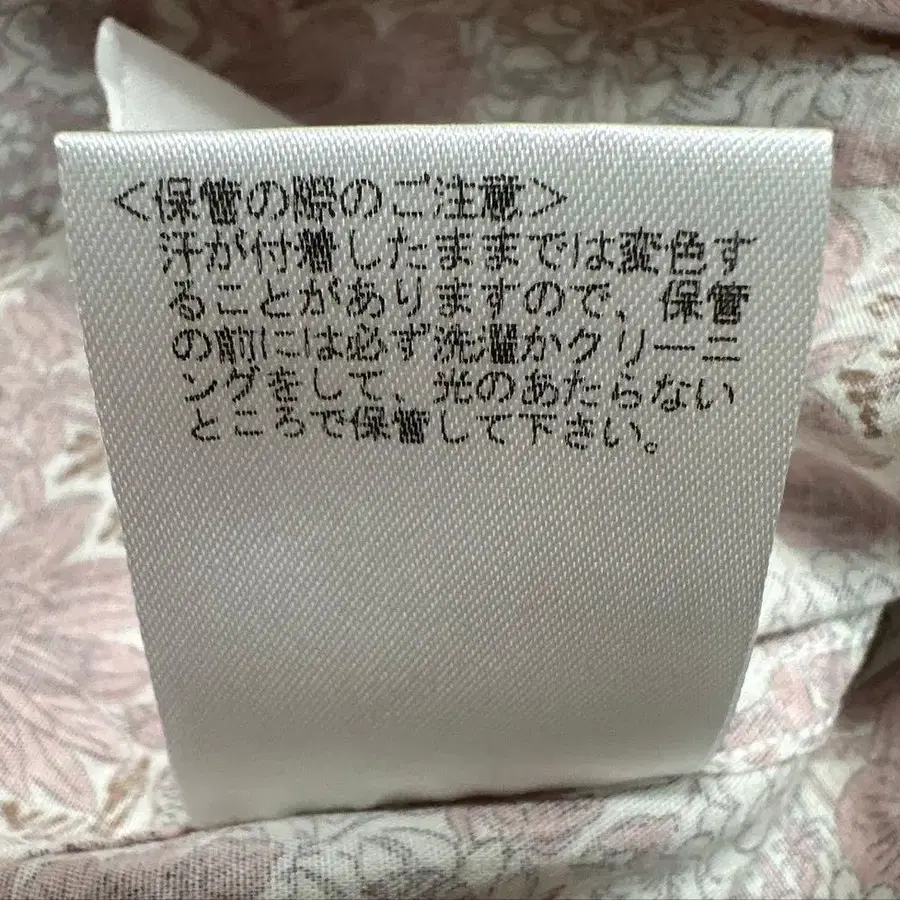 <保管の際のご注意>
汗が付着したままでは変色す
ることがありますので、保管
の前には必ず洗濯かクリーニ
ングをして、光のあたらない
ところで保管して下さい。